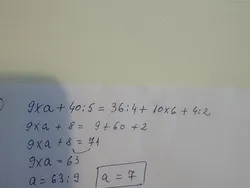 9xa + 40:5 = 36:4 + 10x6 + 4:2
9xa + 8 = 9+60 +2
9xa + 8 = 71
9xa = 63
a = 63:9 a = 7